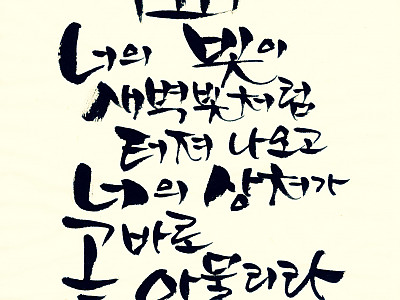 너의 빛이
새벽빛처럼
터져 나오고
너의 상처가
곧바로
아물리라